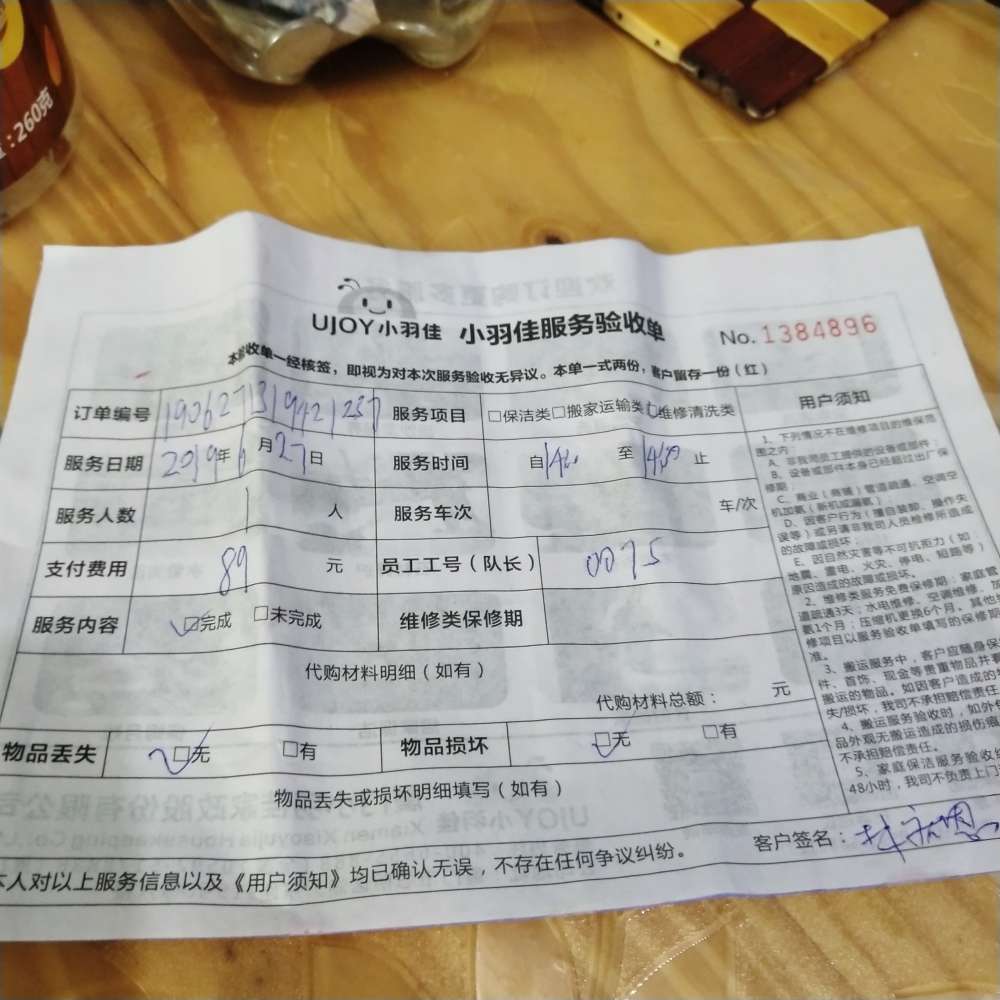 ：260克
UJOY小羽佳 小羽佳服务验收单
No.1384896
本验收单一经核签，即视为对本次服务验收无异议。本单一式两份，客户留存一份（红）
订单编号 190627131942123 服务项目 □保洁类□搬家运输类□维修清洗类 用户须知
服务日期 2019年6月27日 服务时间 自 至 止
服务人数 1 人 服务车次 车/次
支付费用 89 元 员工工号（队长） 0075
服务内容 □完成 □未完成 维修类保修期
代购材料明细（如有）
代购材料总额： 元
物品丢失 □无 □有 物品损坏 □无 □有
物品丢失或损坏明细填写（如有）
本人对以上服务信息以及《用户须知》均已确认无误，不存在任何争议纠纷。
客户签名：
1、下列情况不在维修项目的维保范
围之内：
A、非我司员工提供的设备或部件；
B、设备或部件本身已经超过出厂保
修期；
C、商业（商铺）管道疏通、空调空
机加氨（新机或漏氨）；
D、因客户行为（擅自装卸、操作失
误等）或另请非我司人员检修所造成
的故障或损坏；
E、因自然灾害等不可抗拒力（如
地震、雷电、火灾、停电、短路等）
原因造成的故障或损坏。
2、维修类服务免费保修期：家庭管
道疏通3天；水电维修、空调维修、
氨1个月；压缩机更换6个月。其他
修项目以服务验收单填写的保修
准。
3、搬运服务中，客户应随身保
件、首饰、现金等贵重物品并
搬运的物品。如因客户造成的
失/损坏，我司不承担赔偿责任
4、搬运服务验收时，如外
品外观无搬运造成的损伤痕
不承担赔偿责任。
5、家庭保洁服务验收
48小时，我司不负责上门